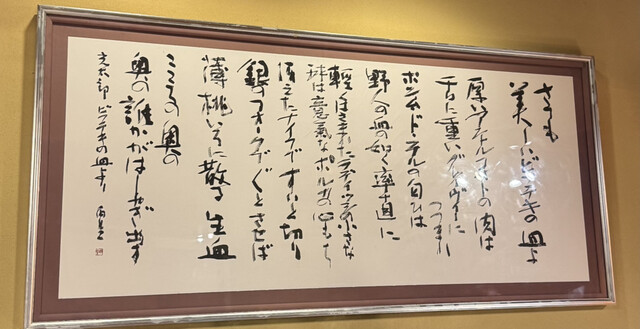 さても
美しいビフテキの皿よ
厚いアントルコオトの肉は
舌に重いグレヴィイに
つつまれ
ポンム、ド、テルの匂ひは
野人の血の如く率直に
軽くはさまれたラディッシの小さな
球は意氣なポルカの心もち
冴えたナイフですいと切り
銀のフォークでぐとさせば
薄桃いろに散る生血
こころの奥の
奥の誰かがはしゃぎ出す
光太郎 ビフテキの皿より